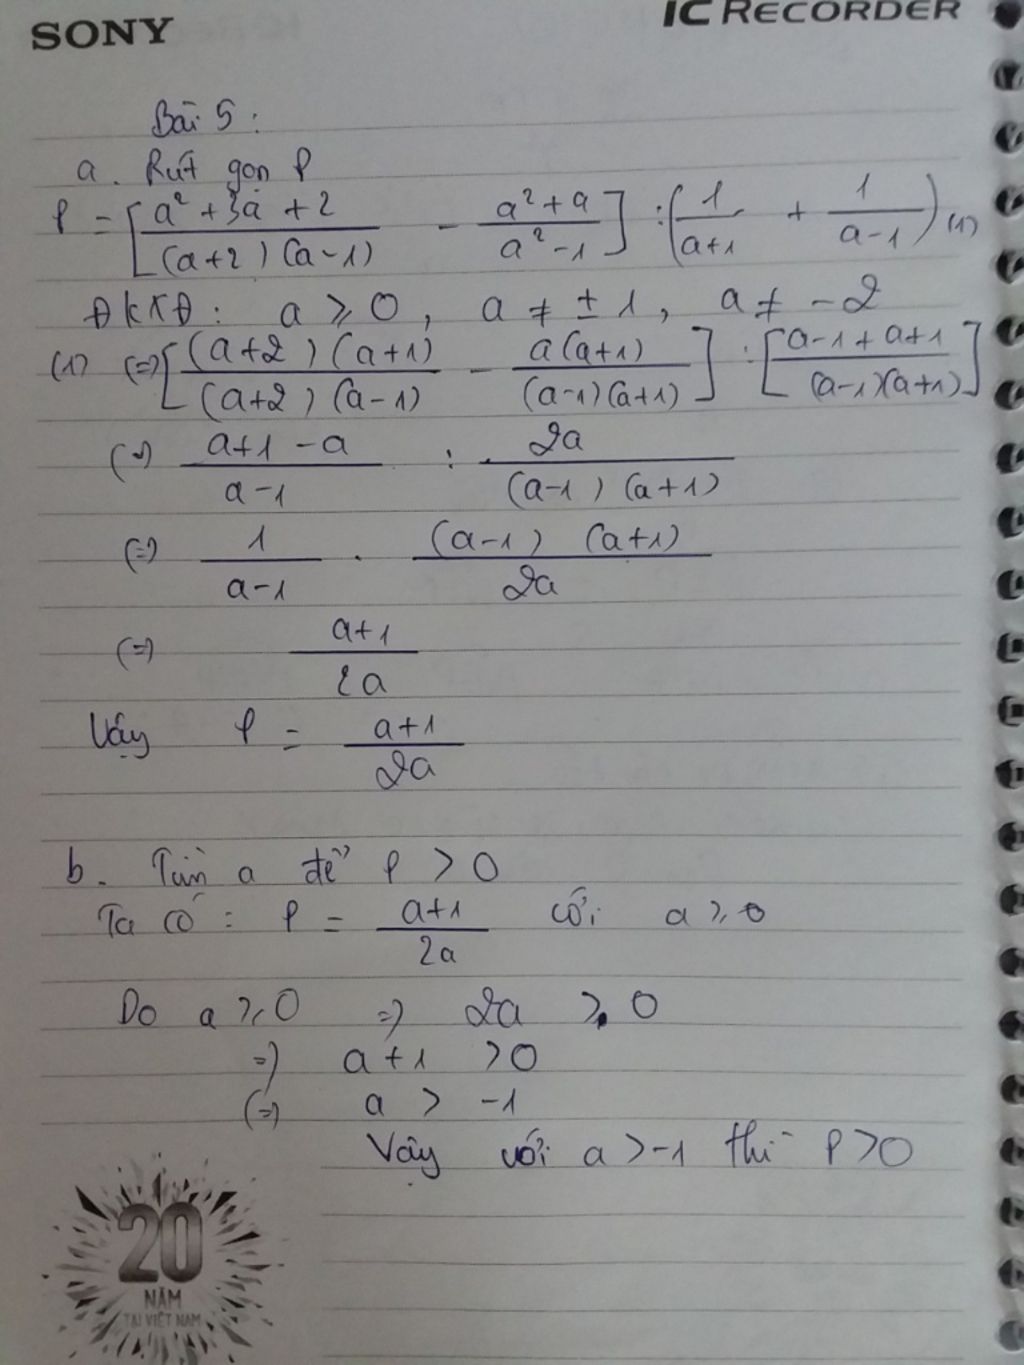 SONY
IC RECORDER
Bài 5:
a. Rút gọn P
P = [(a² + 3a + 2)/((a+2)(a-1)) - (a² + a)/(a² - 1)] : (1/(a+1) + 1/(a-1)) (1)
ĐKXĐ: a ≥ 0, a ≠ ± 1, a ≠ -2
(1) (=) [((a+2)(a+1))/((a+2)(a-1)) - (a(a+1))/((a-1)(a+1))] : [(a-1+a+1)/((a-1)(a+1))]
(=) (a+1-a)/(a-1) : 2a/((a-1)(a+1))
(=) 1/(a-1) . ((a-1)(a+1))/2a
(=) (a+1)/2a
Vậy P = (a+1)/2a
b. Tìm a để P > 0
Ta có: P = (a+1)/2a với a ≥ 0
Do a ≥ 0 => 2a ≥ 0
=) a + 1 > 0
(=) a > -1
Vậy với a > -1 thì P > 0
20
NĂM
TẠI VIỆT NAM